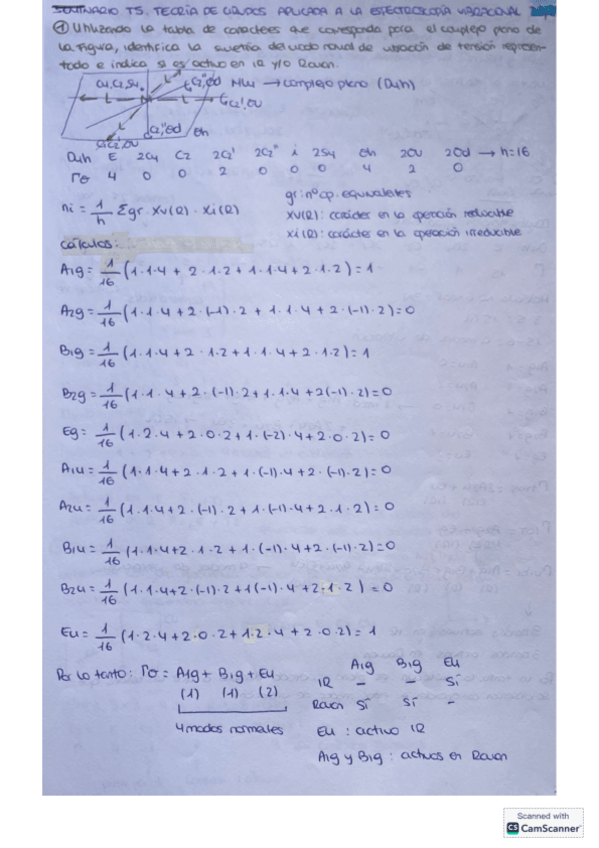 SEMINARIO T5. TEORÍA DE GRUPOS APLICADA A LA ESPECTROSCOPÍA VIBRACIONAL
① Utilizando la tabla de caracteres que corresponda para el complejo plano de
la figura, identifica la simetría del modo normal de vibración de tensión represen-
tado e indica si es activo en IR y/o Raman.
C4, C2, S4
C2'', σd
ML4 → complejo plano (D4h)
C2', σv
L
L
M
C2'', σd
σh
C2', σv
D4h E 2C4 C2 2C2' 2C2'' i 2S4 σh 2σv 2σd → h=16
Γσ 4 0 0 2 0 0 0 4 2 0
ni = 1/h Σgr · Xv(R) · Xi(R)
gr: nº op. equivalentes
Xv(R): carácter en la operación reducible
Xi(R): carácter en la operación irreducible
cálculos:...
A1g = 1/16 (1·1·4 + 2·1·2 + 1·1·4 + 2·1·2) = 1
A2g = 1/16 (1·1·4 + 2·(-1)·2 + 1·1·4 + 2·(-1)·2) = 0
B1g = 1/16 (1·1·4 + 2·1·2 + 1·1·4 + 2·1·2) = 1
B2g = 1/16 (1·1·4 + 2·(-1)·2 + 1·1·4 + 2(-1)·2) = 0
Eg = 1/16 (1·2·4 + 2·0·2 + 1·(-2)·4 + 2·0·2) = 0
A1u = 1/16 (1·1·4 + 2·1·2 + 1·(-1)·4 + 2·(-1)·2) = 0
A2u = 1/16 (1·1·4 + 2·(-1)·2 + 1·(-1)·4 + 2·1·2) = 0
B1u = 1/16 (1·1·4 + 2·1·2 + 1·(-1)·4 + 2·(-1)·2) = 0
B2u = 1/16 (1·1·4 + 2·(-1)·2 + 1(-1)·4 + 2·1·2) = 0
Eu = 1/16 (1·2·4 + 2·0·2 + 1·2·4 + 2·0·2) = 1
Por lo tanto: Γσ = A1g + B1g + Eu
(1) (1) (2)
4 modos normales
A1g B1g Eu
IR - - Sí
Raman Sí Sí -
Eu: activo IR
A1g y B1g: activos en Raman
Scanned with
CS CamScanner